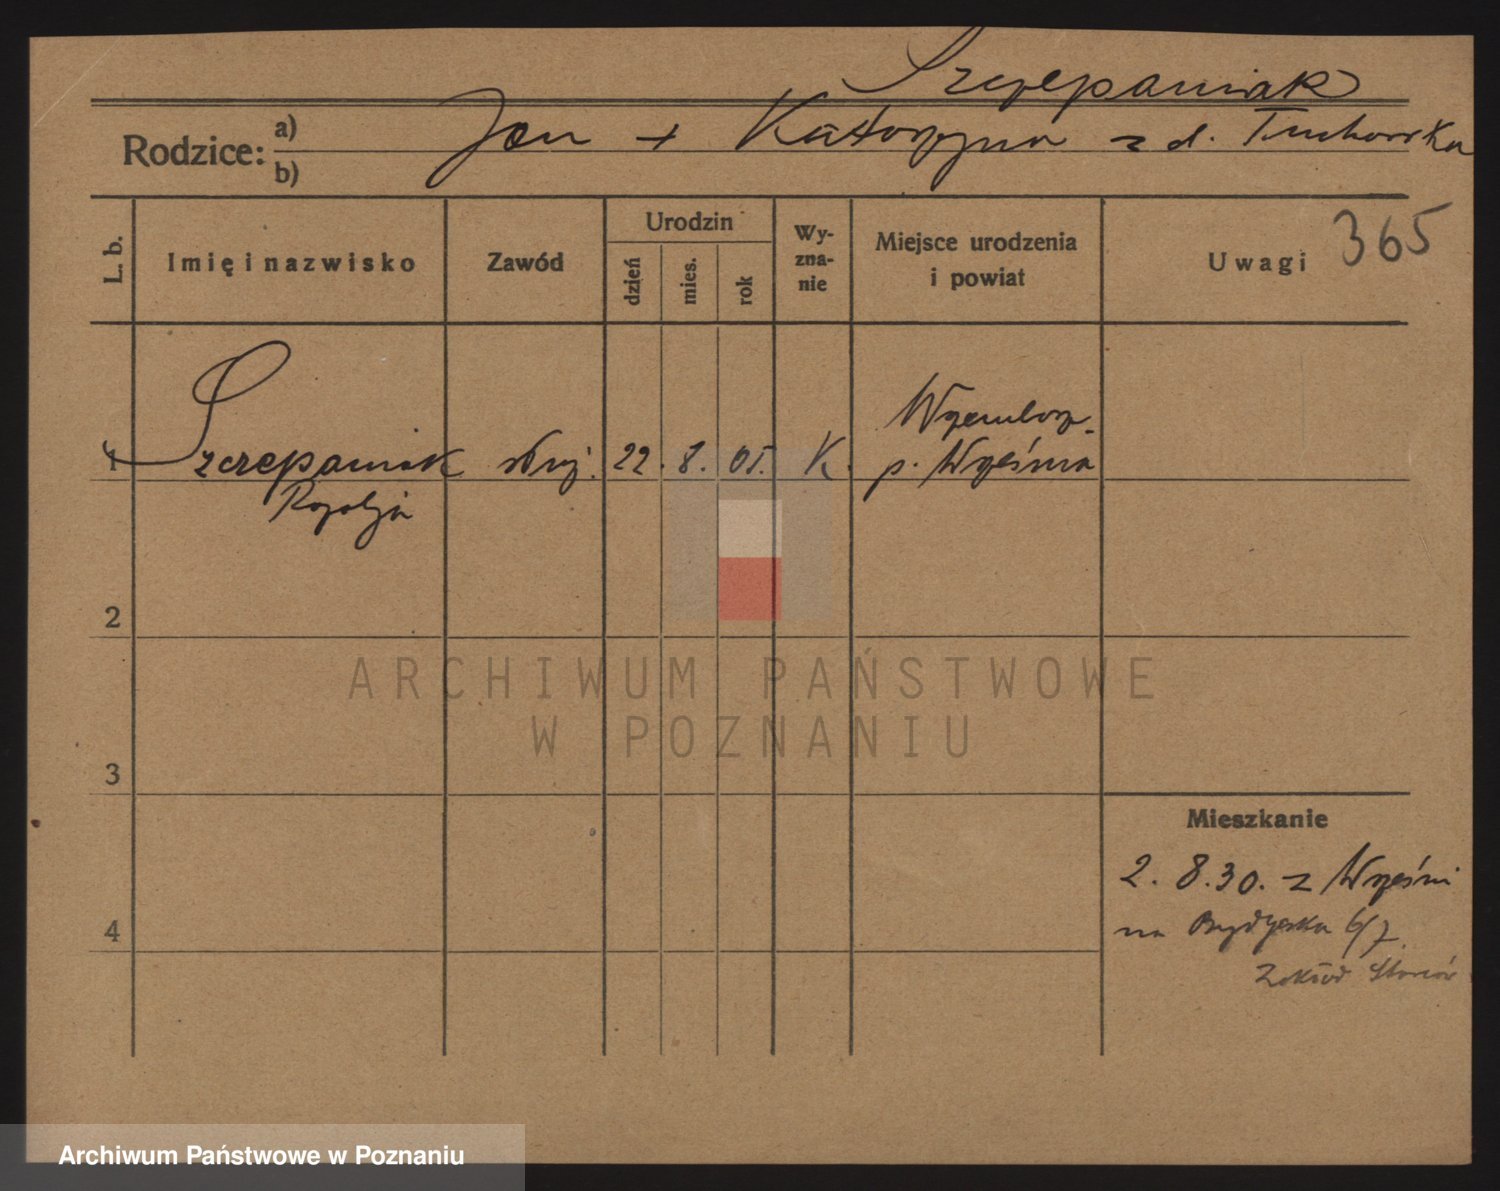 Szczepaniak
Rodzice: a) b) Jan + Katarzyna z d.
L. b.
Imię i nazwisko
Zawód
Urodzin
dzień
mies.
rok
Wy-
zna-
nie
Miejsce urodzenia
i powiat
Uwagi 365
1 Szczepaniak służ. 22. 8. 05. K.
p. Września
2
3
4
Mieszkanie
2. 8. 30. z Wrześni
na 6/7
Zakład
ARCHIWUM PAŃSTWOWE
W POZNANIU
Archiwum Państwowe w Poznaniu